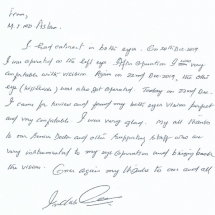 From,
M.S. MD Aslam.
I had cataract in both eyes. On 20th Dec. 2019
I was operated on the left eye. After operation I was very
comfortable with vision. Again on 22nd Dec. 2019, the other
eye (right eye) was also got operated. Today on 22nd Dec.
I came for review and found my both eyes vision perfect
and very comfortable. I was very glad. My all thanks
to our Senior Doctor and other supporting staff who are
very instrumental to my eye operation and bringing back
the vision. Once again my thanks to one and all